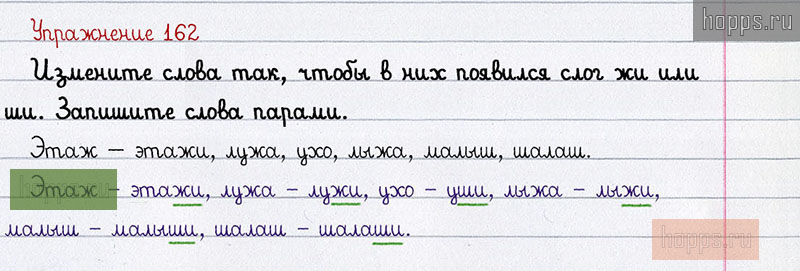 hopps.ru
Упражнение 162
Измените слова так, чтобы в них появился слог жи или
ши. Запишите слова парами.
Этаж – этажи, лужа, ухо, лыжа, малыш, шалаш.
Этаж – этажи, лужа – лужи, ухо – уши, лыжа – лыжи,
малыш – малыши, шалаш – шалаши.
hopps.ru